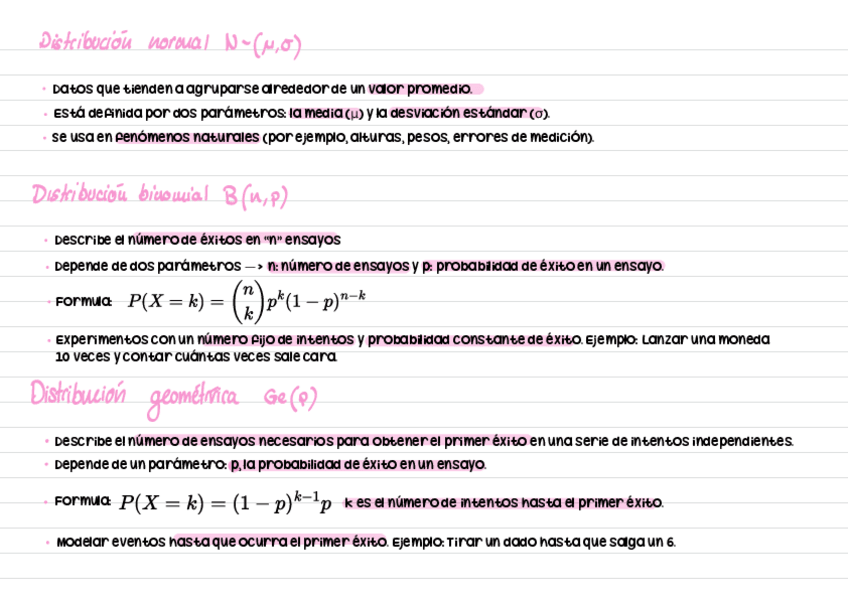 Distribución normal N~(μ,σ)
• Datos que tienden a agruparse alrededor de un valor promedio.
• Está definida por dos parámetros: la media (μ) y la desviación estándar (σ).
• Se usa en fenómenos naturales (por ejemplo, alturas, pesos, errores de medición).
Distribución binomial B(n,p)
• Describe el número de éxitos en "n" ensayos
• Depende de dos parámetros —> n: número de ensayos y p: probabilidad de éxito en un ensayo.
• Formula: P(X = k) = (n k) p^k (1 − p)^{n−k}
• Experimentos con un número fijo de intentos y probabilidad constante de éxito. Ejemplo: Lanzar una moneda
10 veces y contar cuántas veces sale cara.
Distribución geométrica Ge(p)
• Describe el número de ensayos necesarios para obtener el primer éxito en una serie de intentos independientes.
• Depende de un parámetro: p, la probabilidad de éxito en un ensayo.
• Formula: P(X = k) = (1 − p)^{k−1} p k es el número de intentos hasta el primer éxito.
• Modelar eventos hasta que ocurra el primer éxito. Ejemplo: Tirar un dado hasta que salga un 6.